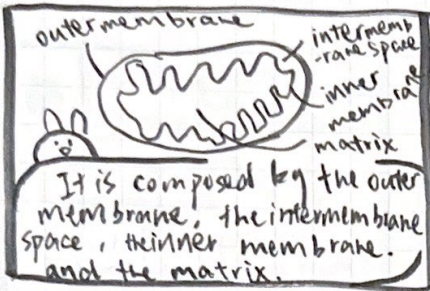 outer membrane
intermemb
-rane space
inner
membrane
matrix
It is composed by the outer
membrane, the intermembrane
space, the inner membrane.
and the matrix.